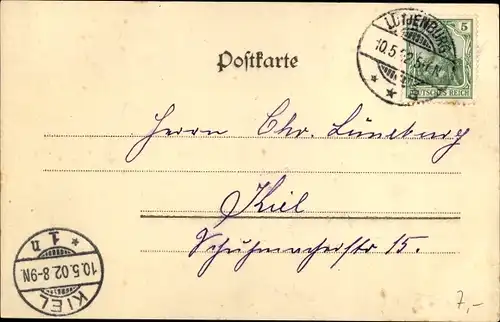 LÜTJENBURG
10.5.02.5-6N.
5
DEUTSCHES REICH
Postkarte
Herrn Chr. Lüneburg
Kiel
Schuhmacherstr 15.
* 1n
10.5.02.8-9N.
KIEL
7,-